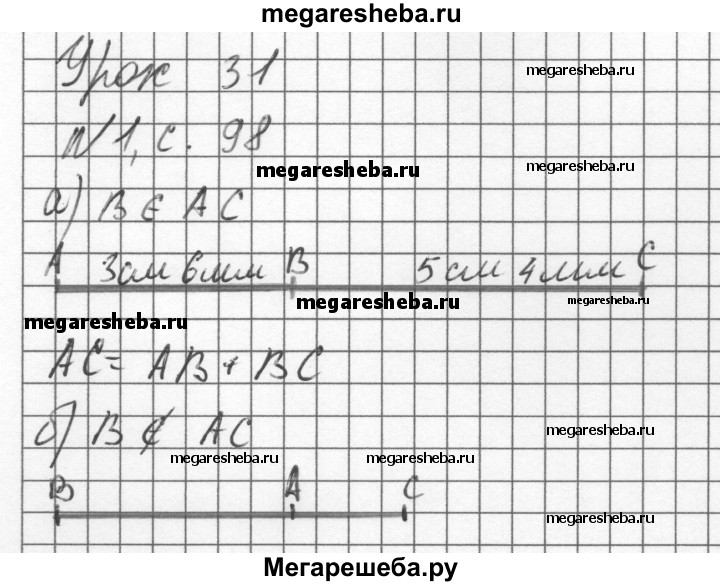 megaresheba.ru
Урок 31
megaresheba.ru
N1, с. 98
megaresheba.ru
megaresheba.ru
а) B ∈ AC
A 3см 6мм B 5см 4мм C
megaresheba.ru
megaresheba.ru
megaresheba.ru
AC = AB + BC
б) B ∉ AC
megaresheba.ru
megaresheba.ru
megaresheba.ru
B A C
megaresheba.ru
Мегарешеба.ру